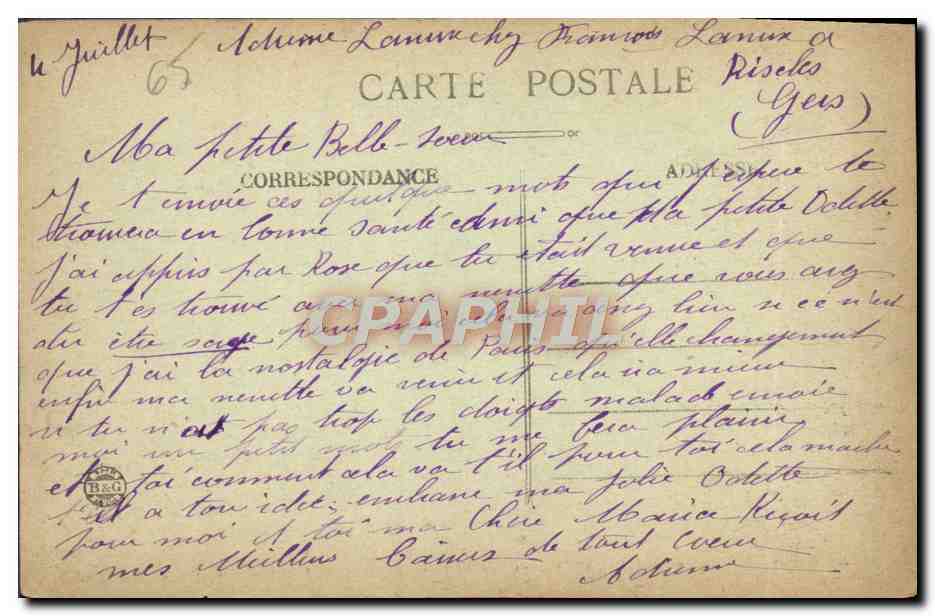 4 Juillet Lanux chez François Lanux a
65
CARTE POSTALE Riscles
(Gers)
Ma petite Belle-soeur
CORRESPONDANCE ADRESSE
Je t envoie ces quelque mots qui j'epere te
trouvera en bonne santé que ta petite Odette
j'ai appris par Rose que tu etait venue et que
tu t'es trouvé avec ma nenette que vous avez
du être sage pour moi cela va assez bien si ce n'est
que j'ai la nostalgie de Paris qu'elle changement
enfin ma nenette va venir et cela ira mieux
si tu n'as pas trop les doigts malade envoie
moi un petit mots tu me fera plaisir
et toi comment cela va t'il pour toi cela marche
B&G
t'il a ton idée embrasse ma jolie Odette
pour moi et toi ma Chère Maria Reçoit
mes Meilleurs Baisers de tout Coeur
CPAPHIL